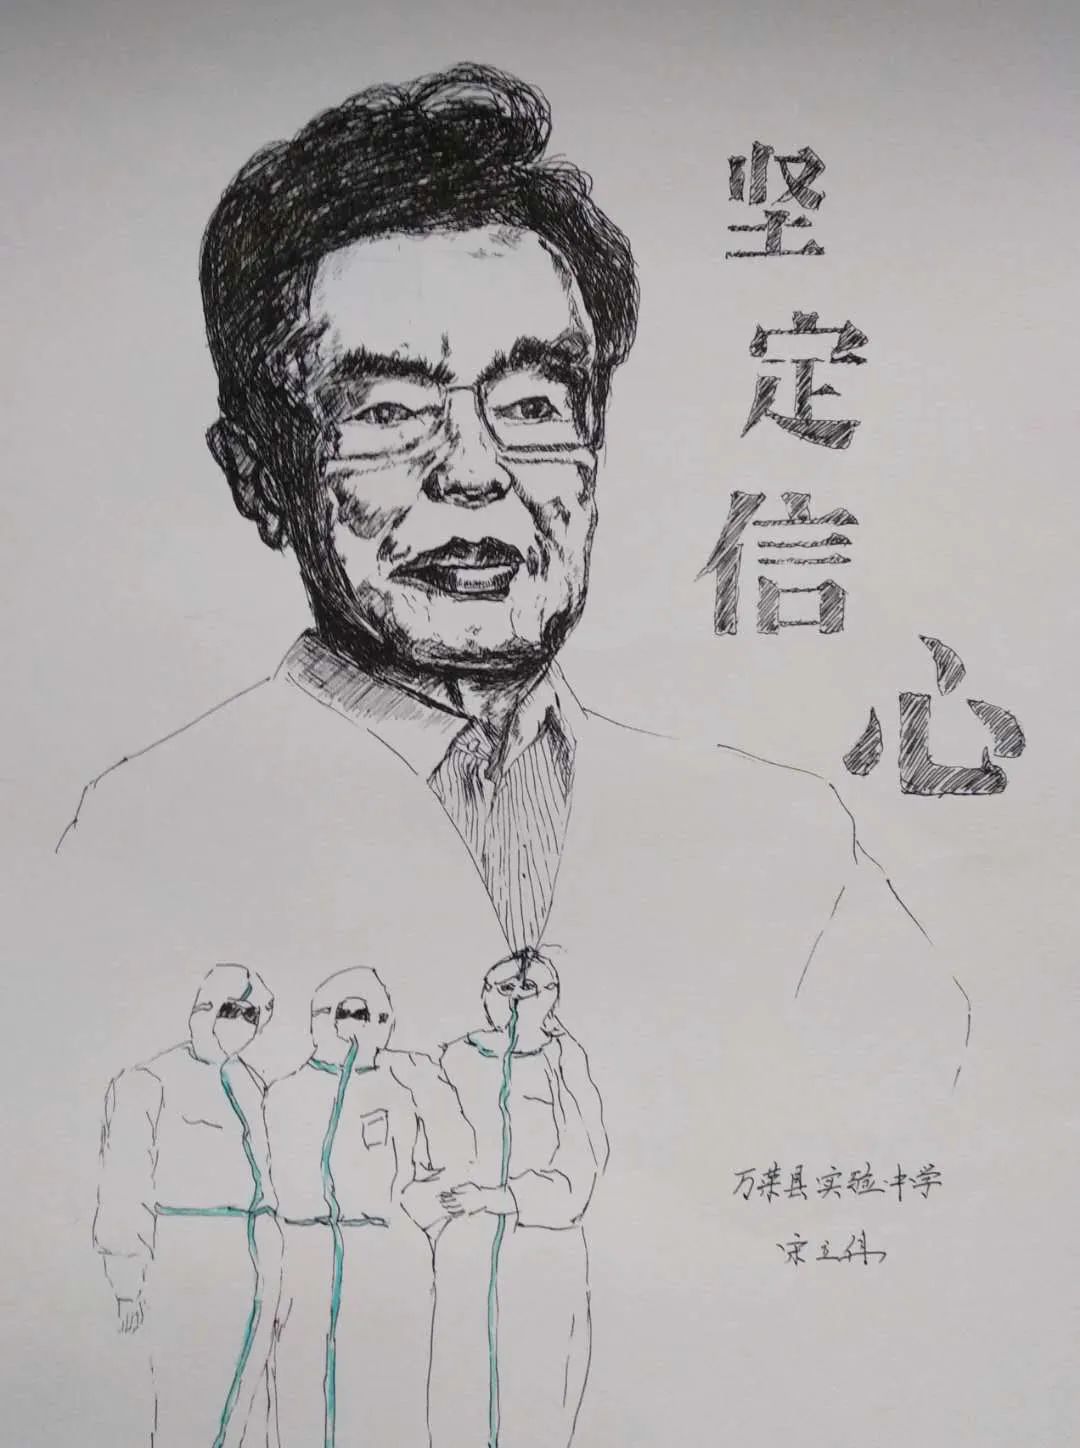 坚定信心
万荣县实验中学
宋立伟